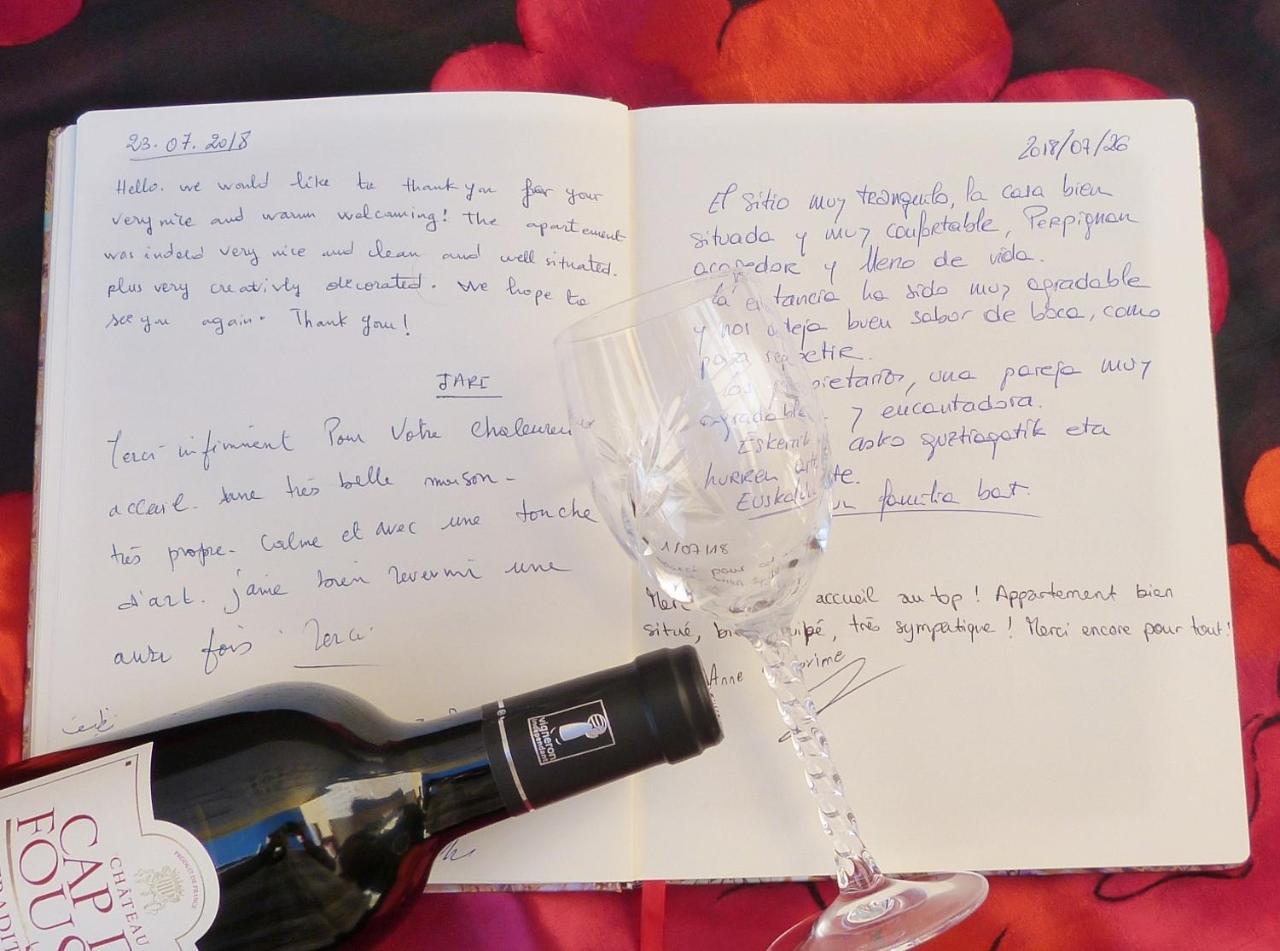 23.07.2018
Hello. we would like to thank you for your
very nice and warm welcoming! the apartement
was indeed very nice and clean and well situated.
plus very creativly decorated. We hope to
see you again. Thank you!
JARI
Merci infiniment Pour Votre
accueil. une très belle maison.
très propre. Calme et avec une touche
d'art. j'aime bien revenir une
autre fois. Merci
2018/07/26
El sitio muy tranquilo, la casa bien
situada y muy confortable, Perpignan
acogedor y lleno de vida.
La estancia ha sido muy agradable
y nos deja buen sabor de boca, como
para repetir.
Los propietarios, una pareja muy
agradable y encantadora.
Eskerrik asko guztiagatik eta
hurren arte.
Euskal familia bat.
1/07/18
Merci accueil au top! Appartement bien
situé, bien équipé, très sympatique! Merci encore pour tout!
Anne
vigneron
indépendant
CHÂTEAU
CAP
FOUS
TRADIT